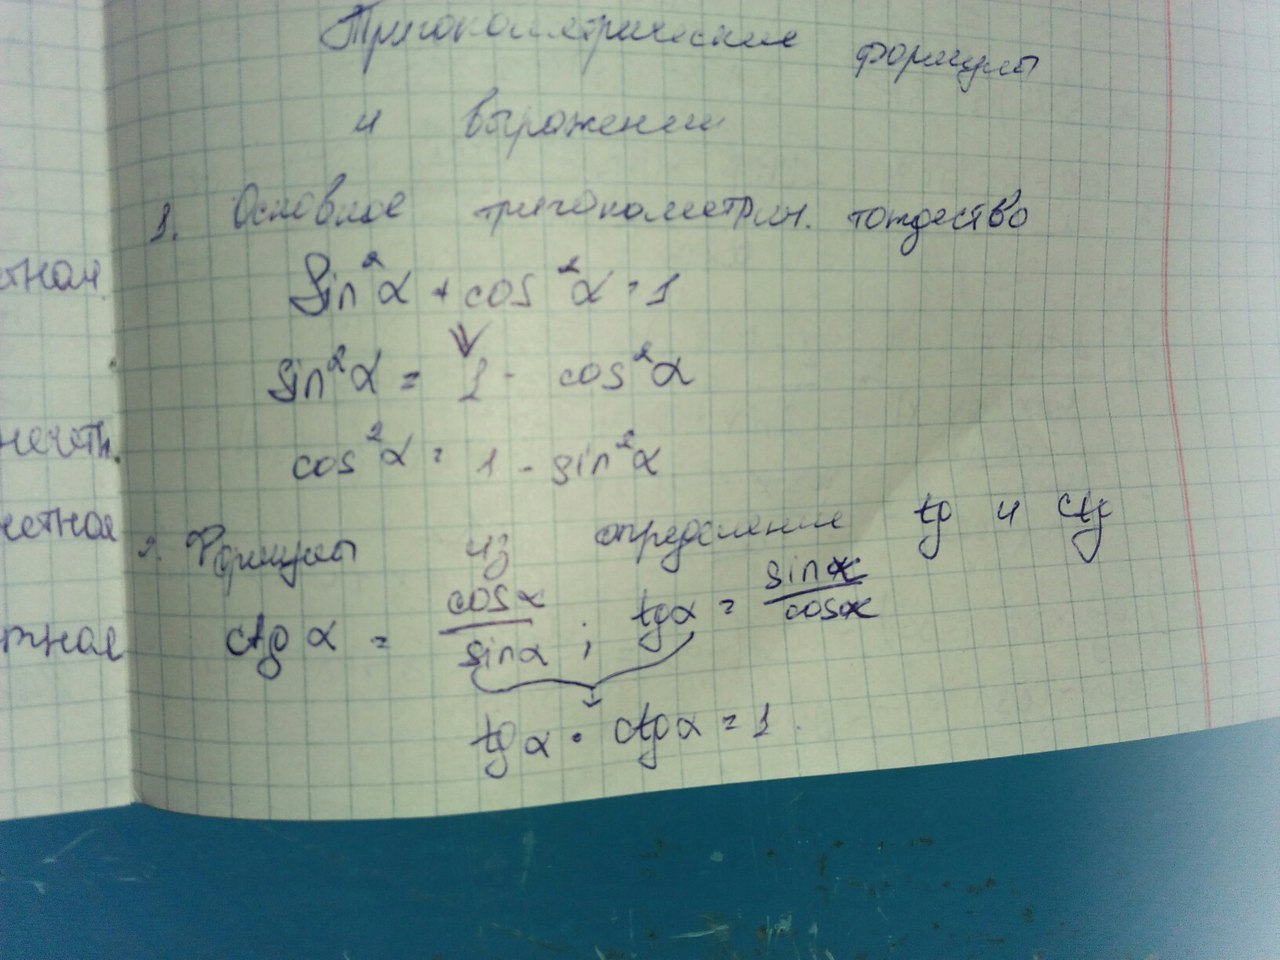 Тригонометрические формулы
и выражении
1. Основное тригонометрич. тождество
Sin²α + cos²α = 1
sin²α = 1 - cos²α
cos²α = 1 - sin²α
2. Формулы из определение tg и ctg
ctg α = cosα/sinα ; tgα = sinα/cosα
tgα · ctgα = 1.
тная
нечетн.
четная
тная